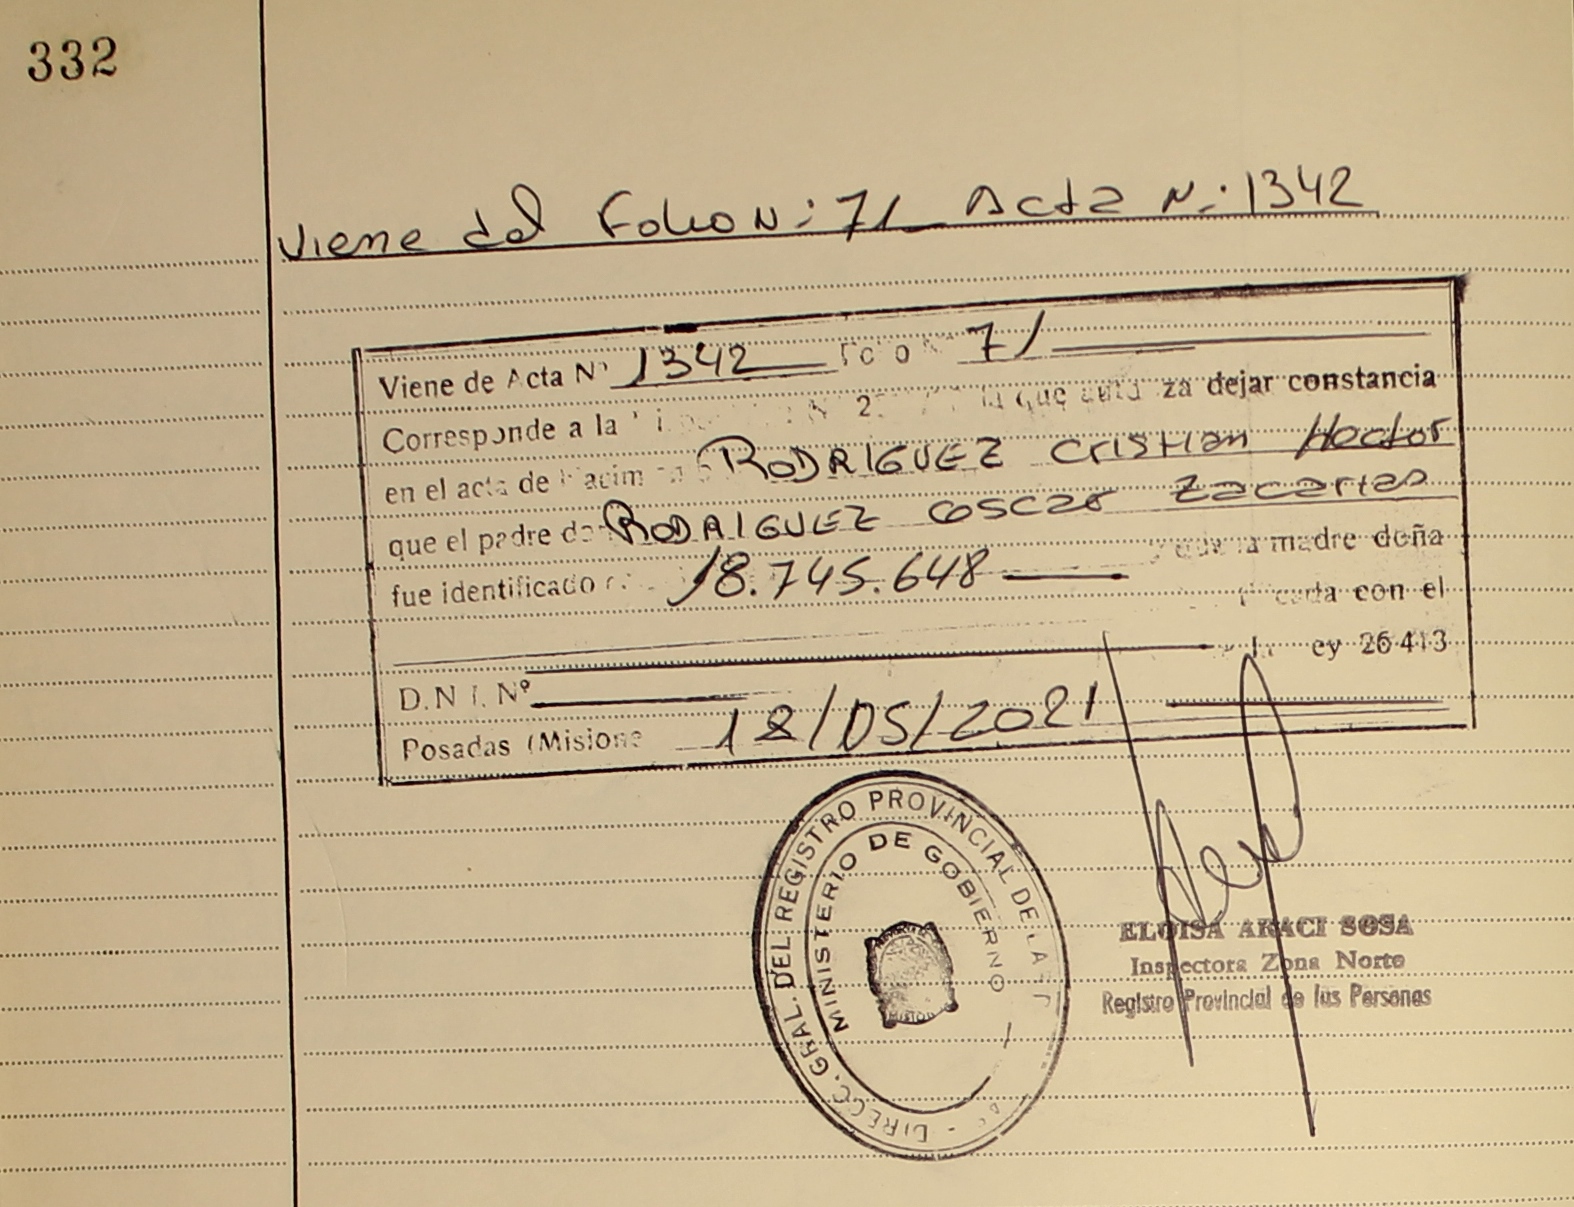 332
Viene del Folio N: 71 Acta N: 1342
Viene de Acta Nº 1342 Folio Nº 71
Corresponde a la la que autoriza dejar constancia
en el acta de Nacimiento RODRIGUEZ Cristian Hector
que el padre don RODRIGUEZ OSCAR Zacarias
fue identificado 18.745.648 y que la madre doña
carta con el
D.N.I. Nº Ley 26413
Posadas (Misiones 18/05/2021
DIRECC. GRAL. DEL REGISTRO PROVINCIAL DE LA
MINISTERIO DE GOBIERNO
ELOISA ARACI SOSA
Inspectora Zona Norte
Registro Provincial de las Personas